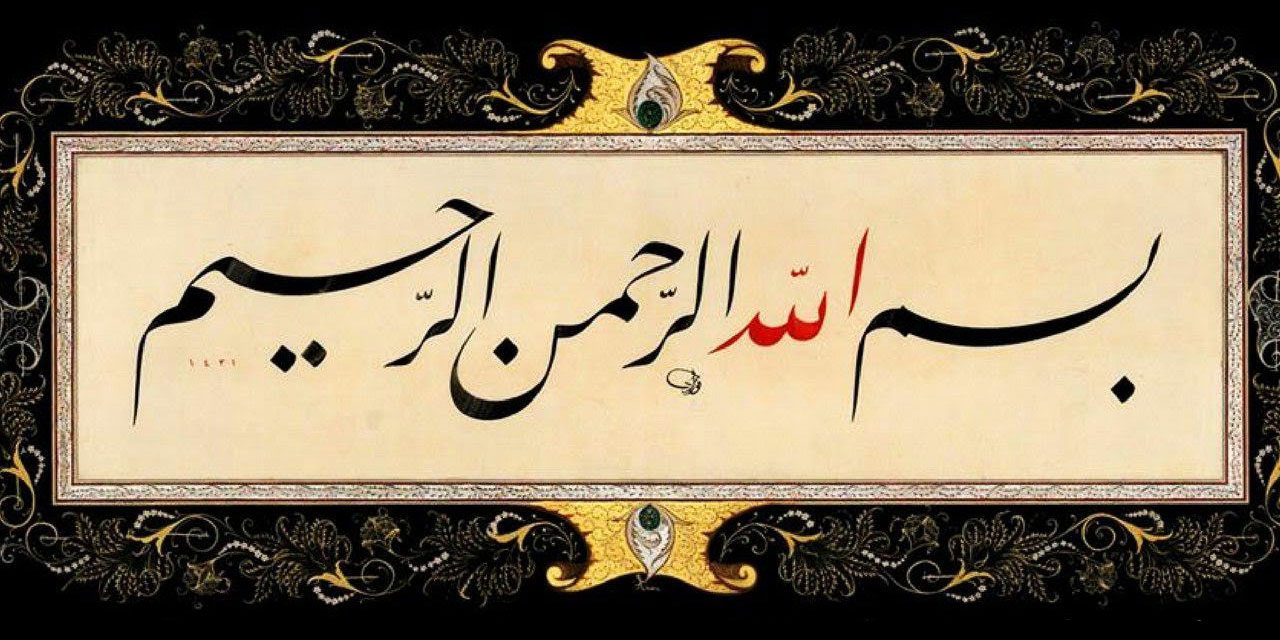 بسم الله الرَّحمن الرَّحيم
١٤٣١